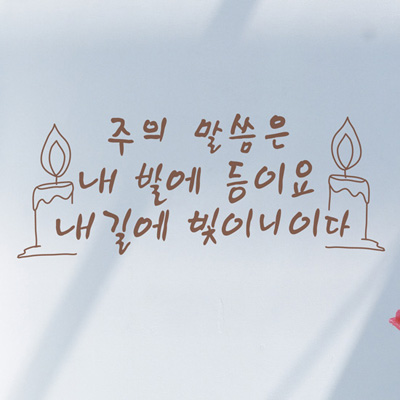 주의 말씀은
내 발에 등이요
내 길에 빛이니이다